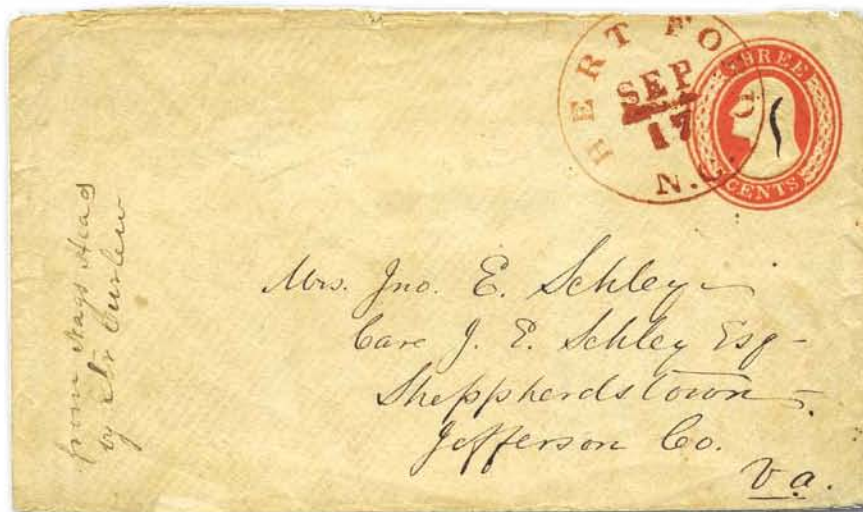 HERTFORD
SEP
17
N.C.
THREE
CENTS
from Nags Head
by Str Curlew
Mrs. Jno. E. Schley
Care J. E. Schley Esq
Sheppherdstown
Jefferson Co.
Va.